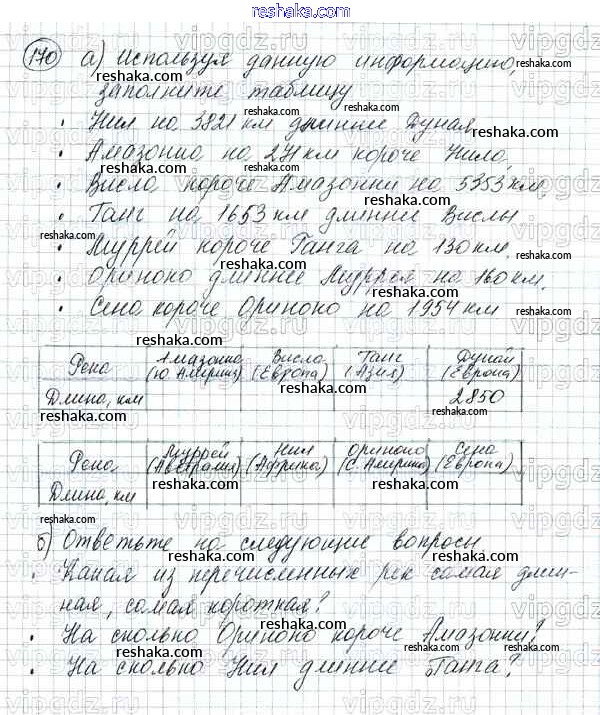 reshaka.com
170 а) Используя данную информацию,
заполните таблицу
· Нил на 3821 км длиннее Дуная
· Амазонка на 271 км короче Нила,
· Висла короче Амазонки на 5353 км,
· Ганг на 1653 км длиннее Вислы
· Муррей короче Ганга на 130 км.
· Ориноко длиннее Муррея на 160 км.
· Сена короче Ориноко на 1954 км
Река Амазонка (Ю Америка) Висла (Европа) Ганг (Азия) Дунай (Европа)
Длина, км 2850
Река Муррей (Австралия) Нил (Африка) Ориноко (С. Америка) Сена (Европа)
Длина, км
б) Ответьте на следующие вопросы
· Какая из перечисленных рек самая длин-
ная, самая короткая?
· На сколько Ориноко короче Амазонки?
· На сколько Нил длиннее Ганга?
reshaka.com